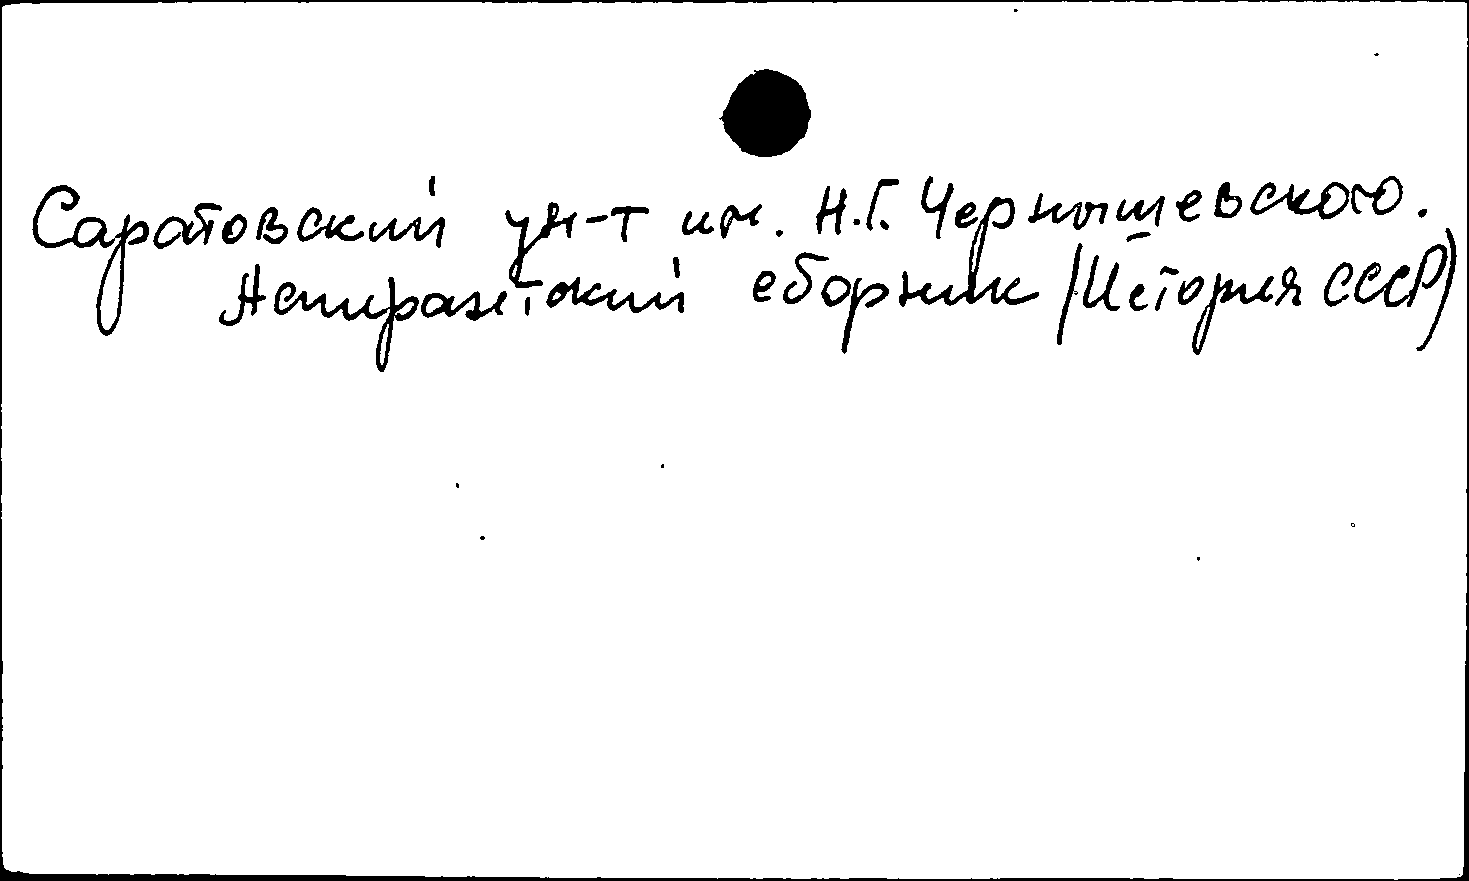 Саратовский ун-т им. Н.Г. Чернышевского.
Аспирантский сборник (История СССР)